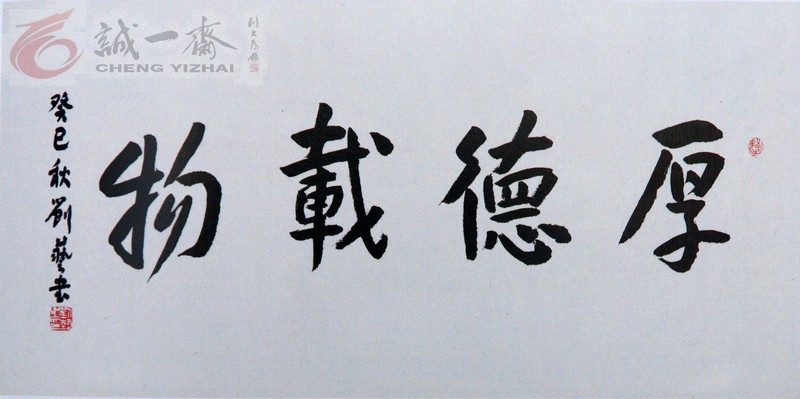 厚德載物
癸巳秋劉藝書
誠一齋
CHENG YIZHAI